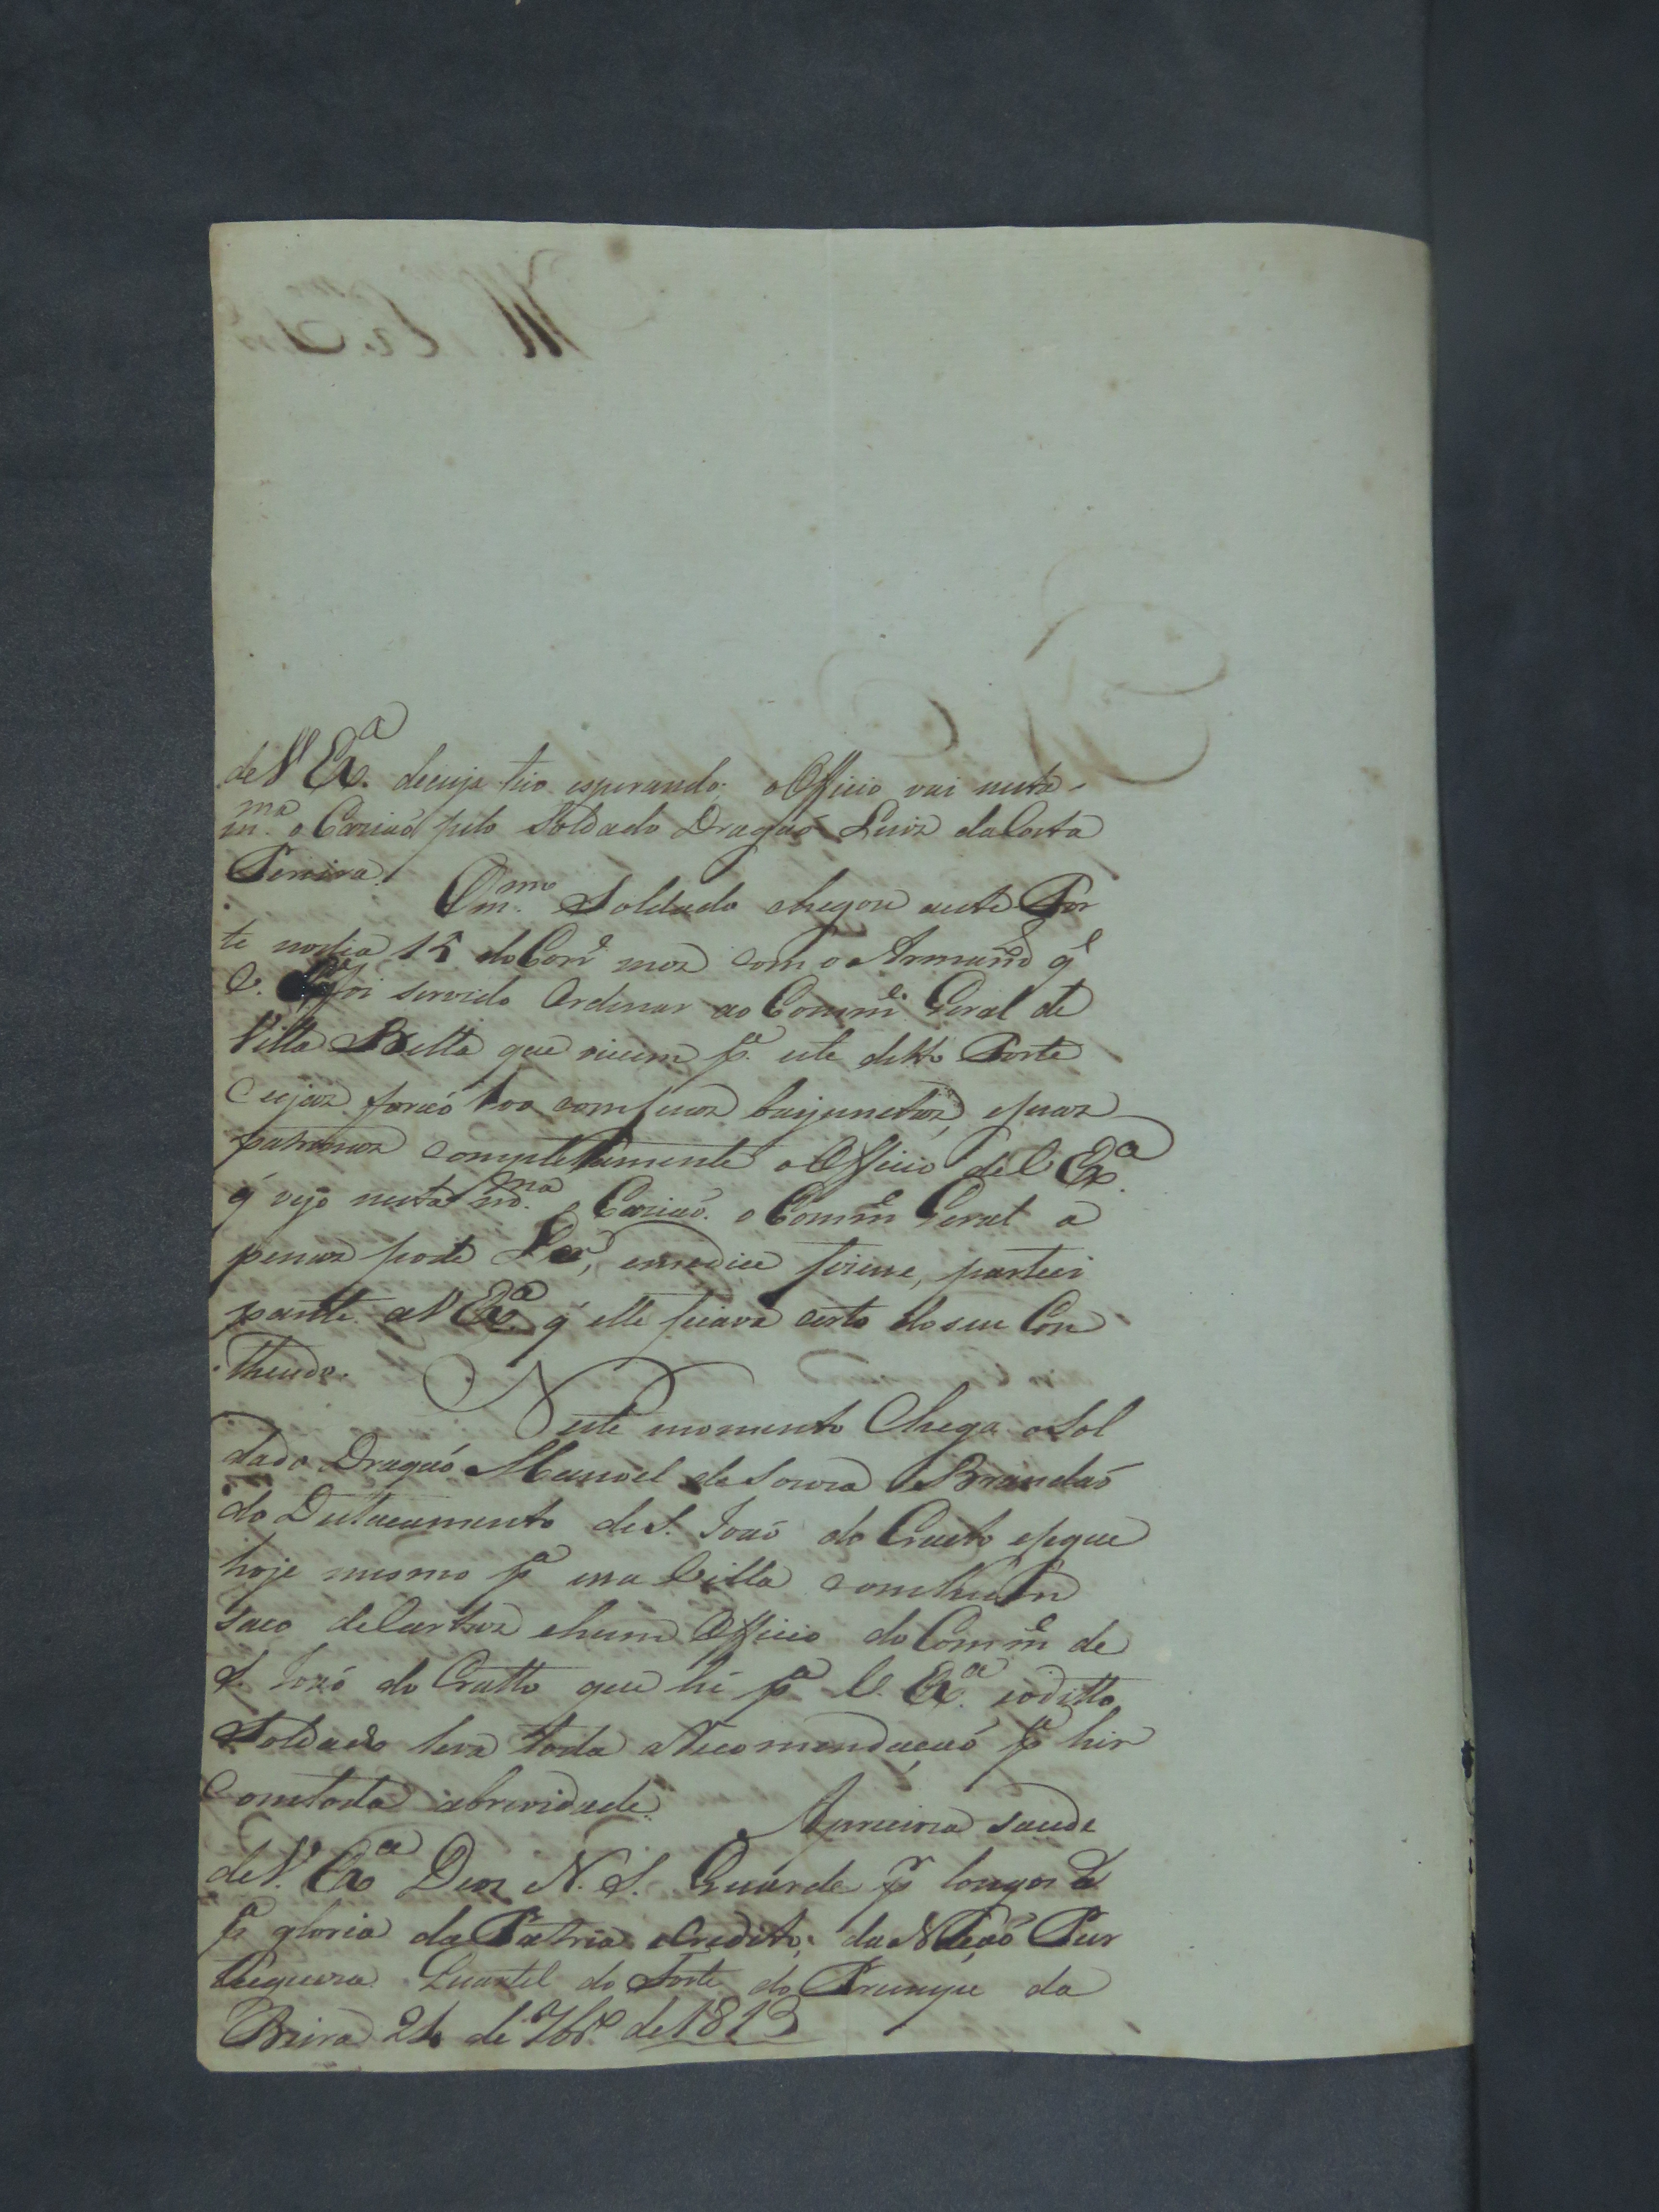 de V Ex.ª decuja fico esperando; o Officio vai nesta
m.ma o Caziaõ pelo Soldado Dragaõ Luiz da Costa
Pereira.
O m.mo Soldado chegou neste For
te nodia 15 do Corr.e mez com o Armam.to q.e
V. Ex.ª foi servido Ordenar ao Comm.e Geral de
Villa Bella que viecem p.ª este ditto Forte
Cujaz foraó 100 com suas baijunetaz, esuaz
patronaz completamente o Officio de V Ex.ª
q' veyo nesta m.ma o Caziaó. o Comm.e Geral a
penaz pode Ler, emedice ficece, parteci
pante a V Ex.ª q' elle ficava certo do seu Con
theudo.
Neste momento Chega o Sol
dado Dragaó Manoel de Souza Brandaó
do Destacamento de S. Joaó do Cratto esegue
hoje mesmo p.ª essa Villa com hum
saco de Cartaz ehum Officio do Comm.e de
S. Joaó do Cratto que hé p.ª V. Ex.ª eoditto
Soldado leva toda aRecomendaçaó p.ª hir
Comtoda abrividade.
Aprecioza saude
de V. Ex.ª Deoz N. S. Guarde p.r longos
p.ª gloria da Patria eCredito, da Naçaó Pur
tugueza. Quartel do Forte do Principe da
Beira 24 de 7br.º de 1813